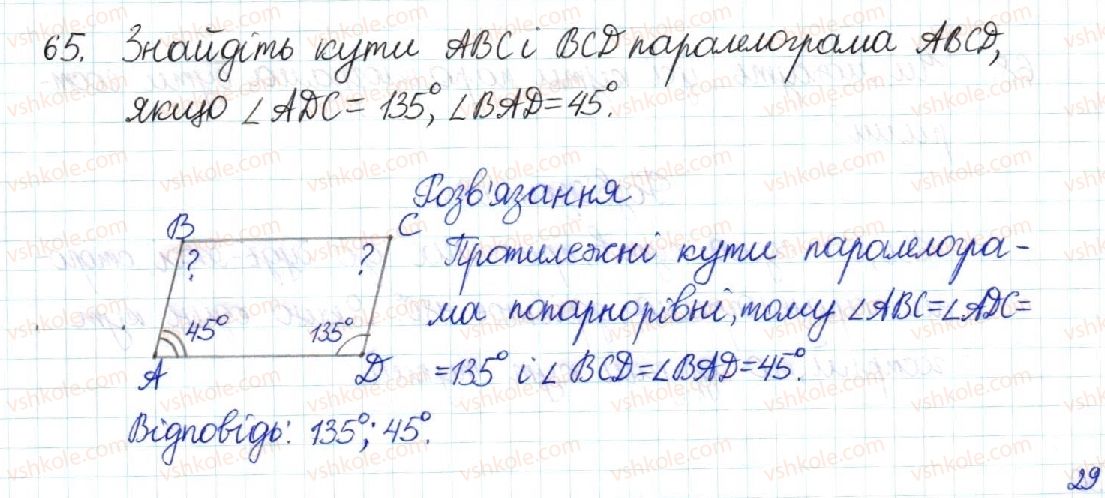 65. Знайдіть кути ABC і BCD паралелограма ABCD,
якщо ∠ADC = 135°, ∠BAD = 45°.
Розв'язання
B C
? ?
45° 135°
A D
Протилежні кути паралелогра-
ма попарнорівні, тому ∠ABC=∠ADC=
=135° і ∠BCD=∠BAD=45°.
Відповідь: 135°; 45°.
29
vshkole.com